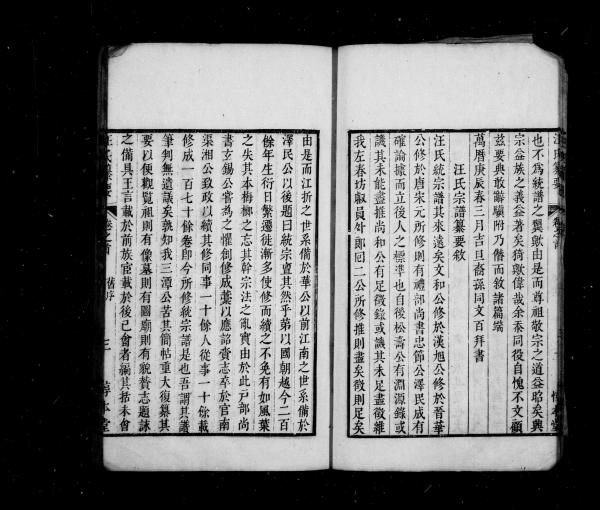 汪氏纂要
也不爲統譜之翼歟由是而尊祖敬宗之道益昭矣與
宗益族之義益著矣猗歟偉哉余忝同役自愧不文顧
茲要典敢辭驥附乃僭而敘諸篇端
萬曆庚辰春三月吉旦裔孫同文百拜書
汪氏宗譜纂要敘
汪氏統宗譜其來遠矣文和公修於漢旭公修於晉華
公修於唐宋元所修則有禮部尚書忠節公澤民咸有
確論據而立後人之標準也自後松壽公有淵源錄或
譏其未能盡推尚和公有足徵錄或譏其未足盡徵維
我左春坊淑員外郎囘二公所修推則盡矣徵則足矣
由是而江折之世系備於華公以前江南之世系備於
澤民公以後題曰統宗亶其然乎第以國朝越今二百
餘年生衍日繁遷徙漸多使修而續之不免有如風葉
之失其本梅柳之忘其幹宗法之亂實由於此戸部尚
書玄錫公嘗爲之懼創修成藁以應詔賫志卒於官南
渠湘公致政以續其修同事一十餘人從事一十餘載
修成一百七十餘卷卽今所修統宗譜是也吾謂其譜
筆判無遺議矣孰知我三潭公苦其簡帖重大復纂其
要以便觀覧祖則有像墓則有圖廟則有貌賛志題詠
之備具王言載於前族宦載於後已會者編其括未會
汪氏纂要 卷之首 舊序 三